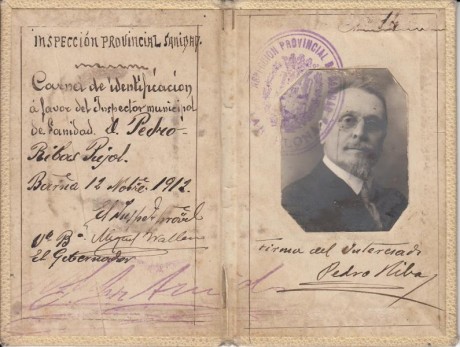 INSPECCIÓN PROVINCIAL SANIDAD.
Carnet de identificación
a favor del Inspector municipal
de Sanidad. D. Pedro
Ribas Pujol.
Barna 12 Nobre 1912
El Insper provál
Vº Bº Miguel
El Gobernador
INSPECCIÓN PROVINCIAL DE SANIDAD
Firma del Interesado
Pedro Riba